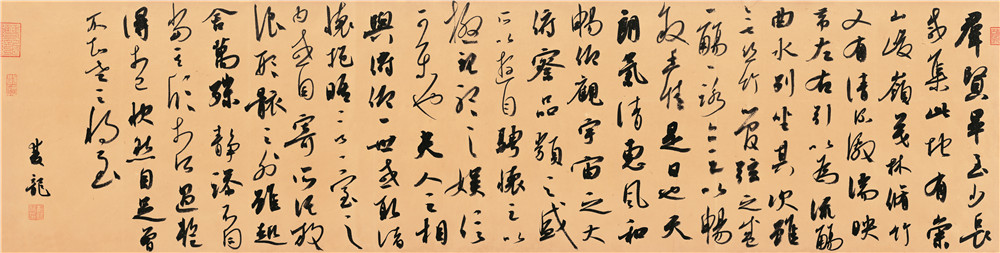 群賢畢至少長
咸集此地有崇
山峻嶺茂林脩竹
又有清流激湍映
帶左右引以為流觴
曲水列坐其次雖
無絲竹管弦之盛
一觴一詠亦足以暢
敘幽情是日也天
朗氣清惠風和
暢仰觀宇宙之大
俯察品類之盛
所以遊目騁懷足以
極視聽之娛信
可樂也夫人之相
與俯仰一世或取諸
懷抱晤言一室之
內或因寄所託放
浪形骸之外雖趣
舍萬殊靜躁不同
當其欣於所遇暫
得於己快然自足曾
不知老之將至
龍